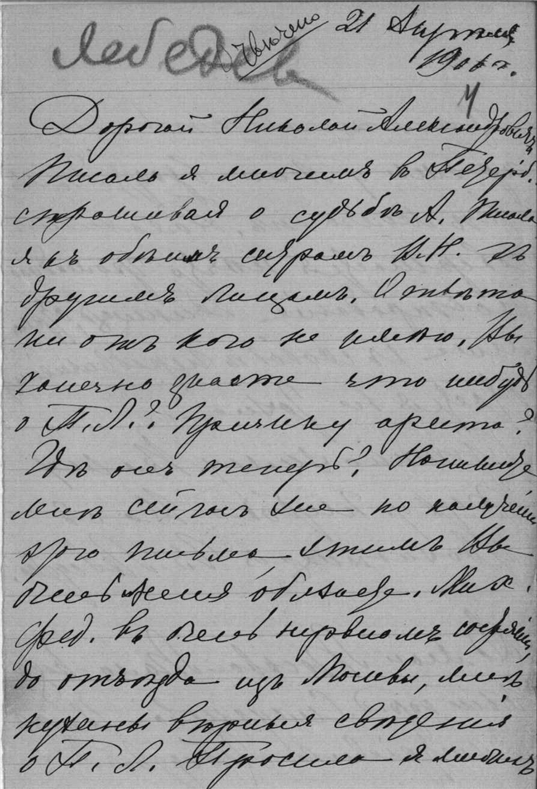 Лебедев
21 Апреля
190 г.
Дорогой Николай Александрович
Писалъ я многимъ в Петерб.
спрашивая о судьбѣ А. Писала
я къ обѣимъ сестрамъ Н.Н. къ
другимъ лицамъ. Отвѣта
ни отъ кого не имѣю. Вы
конечно знаете что нибудь
о П.Л.? Причину ареста?
Гдѣ онъ теперь? Напишите
мнѣ сейчасъ же по получении
этого письма, этимъ Вы
очень меня обяжете. Мих.
Фед. въ очень нервномъ состоянии,
до отъѣзда изъ Москвы, мнѣ
нужны вѣрныя свѣдения
о П.Л. Просила я многихъ